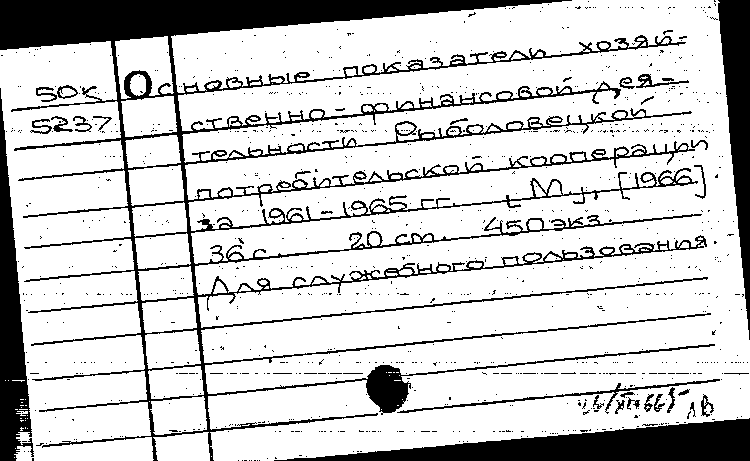 50к Основные показатели хозяй=
5237 ственно-финансовой дея=
тельности Рыболовецкой
потребительской кооперации
за 1961-1965 гг. [М.], [1966].
36 с. 20 cm. 450 экз.
Для служебного пользования.
ЛВ